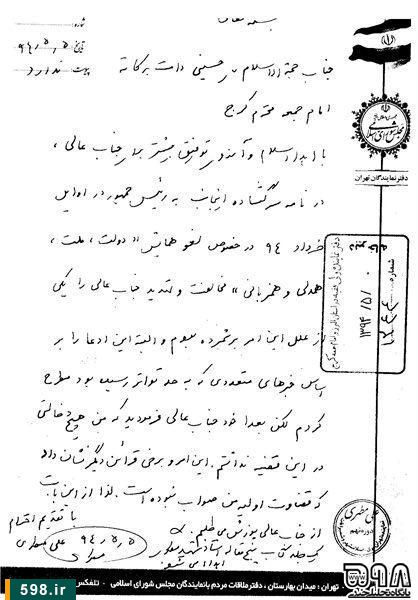 بسمه تعالی
شماره:
تاریخ ۹۴/۵/۵
پیوست ندارد
مجلس شورای اسلامی
دفتر نمایندگان تهران
جناب حجة الاسلام حسینی دامت برکاته
امام جمعه محترم کرج
با اهداء سلام و آرزوی توفیق بیشتر برای جناب عالی،
در نامه سرگشاده اینجانب به رئیس جمهور در اوایل
خرداد ۹۴ در خصوص لغو همایش «دولت، ملت،
همدلی و همزبانی» مخالفت و تهدید جناب عالی را یکی
از علل این امر برشمرده بودم و البته این ادعا را بر
اساس خبرهای متعددی که به حد تواتر رسیده بود مطرح
کردم لکن بعدا خود جناب عالی فرمودید که من هیچ دخالتی
در این قضیه نداشتم. این امر و برخی قرائن دیگر نشان داد
که قضاوت اولیه من صواب نبوده است. لذا از این بابت
از جناب عالی پوزش می طلبم.
با تقدیم احترام
علی مطهری
۹۴/۵/۵
دبیرخانه
شماره:
۱۳۹۴/۵/
علی مطهری
تهران: میدان بهارستان، دفتر ملاقات مردم با نمایندگان مجلس شورای اسلامی - تلفکس
598.ir
۵۹۸